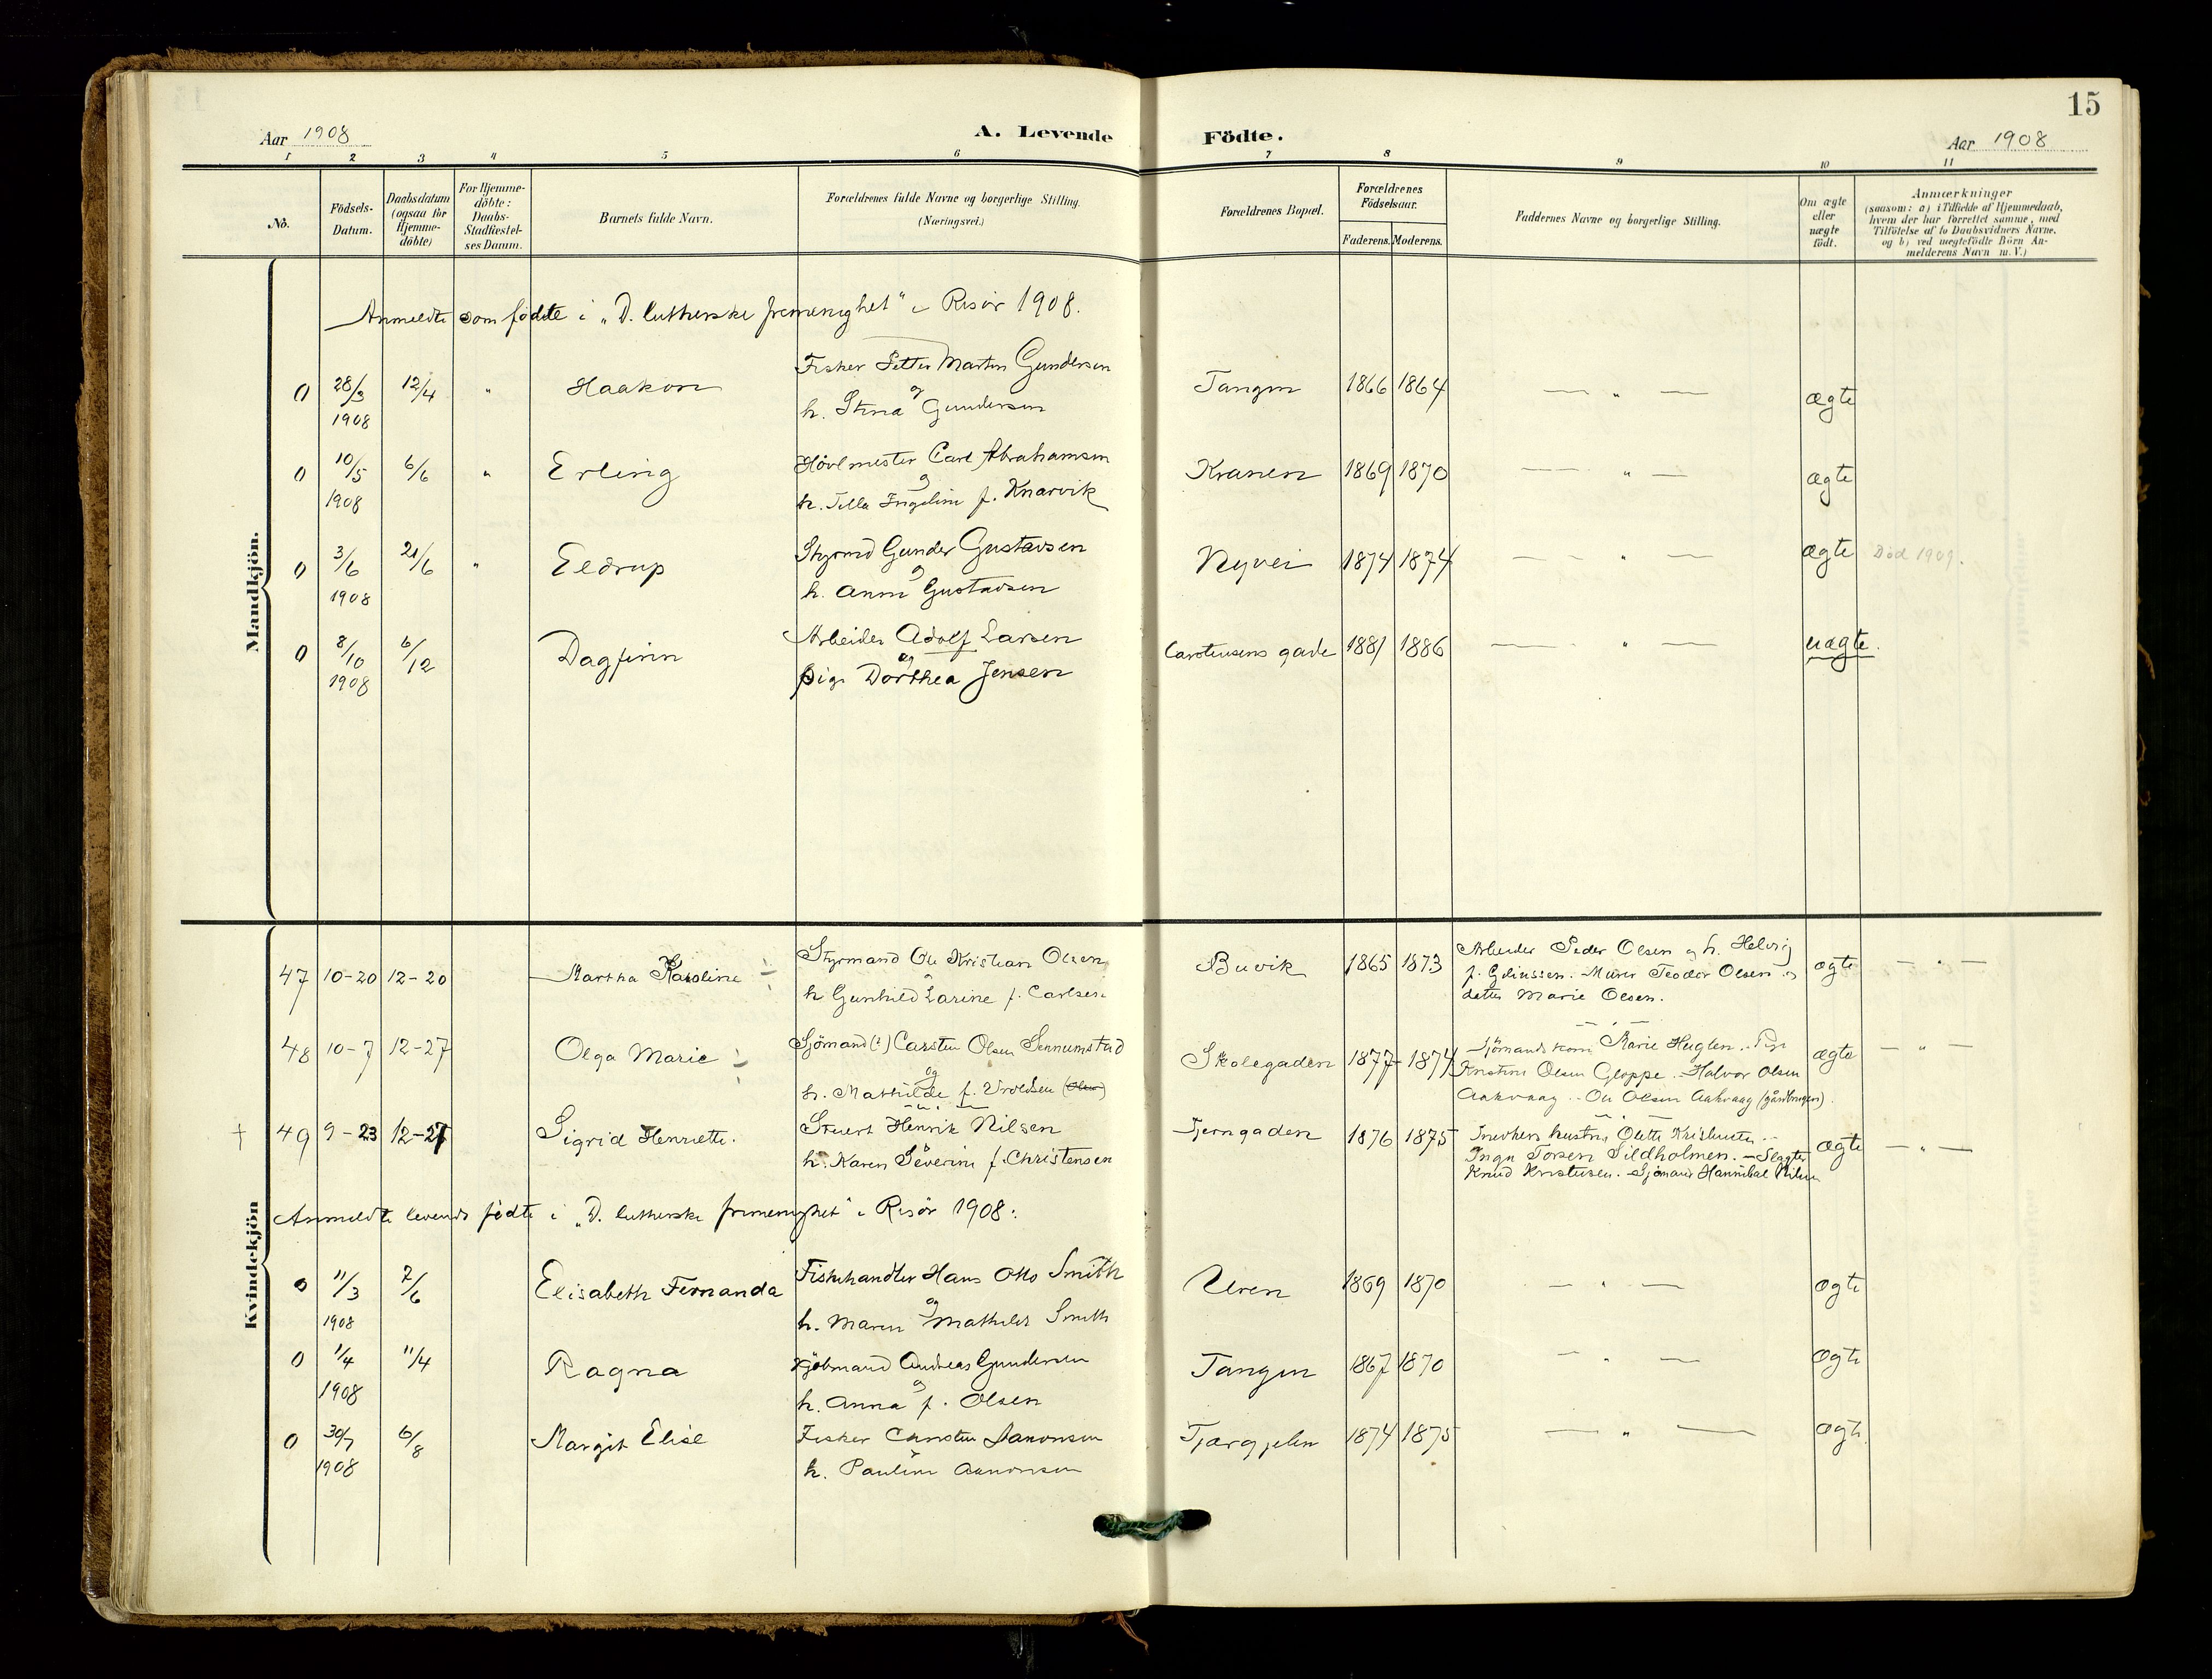 15
Aar 1908
A. Levende Födte.
Aar 1908
1 2 3 4 5 6 7 8 9 10 11
No.
Födsels-Datum.
Daabsdatum (ogsaa for Hjemme-döbte)
For Hjemme-döbte: Daabs-Stadfæstel-ses Datum.
Barnets fulde Navn.
Forældrenes fulde Navne og borgerlige Stilling. (Næringsvei.)
Forældrenes Bopæl.
Forældrenes Födselsaar.
Faderens. Moderens.
Faddernes Navne og borgerlige Stilling.
Om ægte eller uægte födt.
Anmærkninger
(saasom: a) i Tilfælde af Hjemmedaab, hvem der har forrettet samme, med Tilföielse af to Daabsvidners Navne, og b) ved uægtefödte Börn Anmelderens Navn m.V.)
Mandkjön.
Anmeldte som fødte i „D. lutherske frimenighet" i Risør 1908.
0 28/3 12/4 " Haakon Fisker Petter Martin Gundersen Tangen 1866 1864 — " — ægte
1908 og
h. Stina Gundersen
0 10/5 6/6 " Erling Hövlmester Carl Abrahamsen Kranen 1869 1870 — " — ægte
1908 og
h. Tella Ingeline f. Knarvik
0 3/6 21/6 " Eldrup Styrmd Gunder Gustavsen Nyvei 1874 1874 — " — ægte Död 1909.
1908 og
h. Anna Gustavsen
0 8/10 6/12 Dagfinn Arbeider Adolf Larsen Carstensens gade 1881 1886 — " — uægte.
1908 og
pige Dorthea Jensen
Kvindekjön
47 10-20 12-20 Martha Karoline Styrmand Ole Kristian Olsen Buvik 1865 1873 Arbeider Peder Olsen og h. Helvig ægte — " —
og
h Gunhild Larine f. Carlsen
Murer Teodor Olsen og
datter Marie Olsen.
48 10-7 12-27 Olga Marie Sjömand (?) Carsten Olsen Sennumstad Skolegaden 1877 1874 Sjömandskone Marie Huglen. Pige ægte — " —
og
h. Mathilde f. Vroldsen (Olsen)
Kristine Olsen Gloppe. Halvor Olsen
Aakvaag. Ole Olsen Aakvaag (gårdbruger).
† 49 9-23 12-27 Sigrid Henriette. Stuert Henrik Nilsen Tjerngaden 1876 1875 Snedkers hustru Olette Kristensen ægte — " —
h. Karen Severine f. Christensen
Torsen Sildholmen. - Slagter
Knud Kristensen. Sjömand Hannibal Nilsen
Anmeldte levende fødte i „D. lutherske frimenighet" i Risør 1908:
0 11/3 7/6 Elisabeth Fernanda Fiskehandler Hans Otto Smith Uren 1869 1870 — " — ægte
1908 og
h. Maren Mathilde Smith
0 11/4 11/4 Ragna Kjöbmand Andreas Gundersen Tangen 1867 1870 — " — ægte
1908 og
h. Anna f. Olsen
0 30/7 6/8 Margit Elise Fisker Carsten Aanonsen Tjærgjelen 1874 1875 — " — ægte
1908
h. Pauline Aanonsen